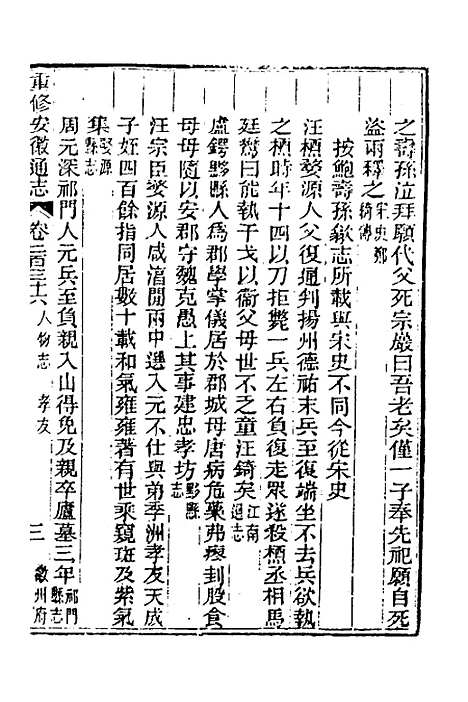 之壽孫泣拜願代父死宗巖曰吾老矣僅一子奉先祀願自死
盜兩釋之宋史鄭綺傳
按鮑壽孫歙志所載與宋史不同今從宋史
汪樌婺源人父復通判揚州德祐末兵至復端坐不去兵欲執
之樌時年十四以刀拒斃一兵左右負復走眾遂殺樌丞相馬
廷鸞曰能執干戈以衞父母世不乏童汪錡矣江南通志
盧鍔黟縣人為郡學掌儀居於郡城母唐病危藥弗瘳刲股食
母母隨以安郡守魏克愚上其事建忠孝坊黟縣志
汪宗臣婺源人咸淳間兩中選入元不仕與弟季洲孝友天成
子姪四百餘指同居數十載和氣雍雍著有世乘窺斑及紫氣
集婺源縣志
周元深祁門人元兵至負親入山得免及親卒廬墓三年祁門縣志
重修安徽通志 卷二百三十六 人物志 孝友 三 徽州府